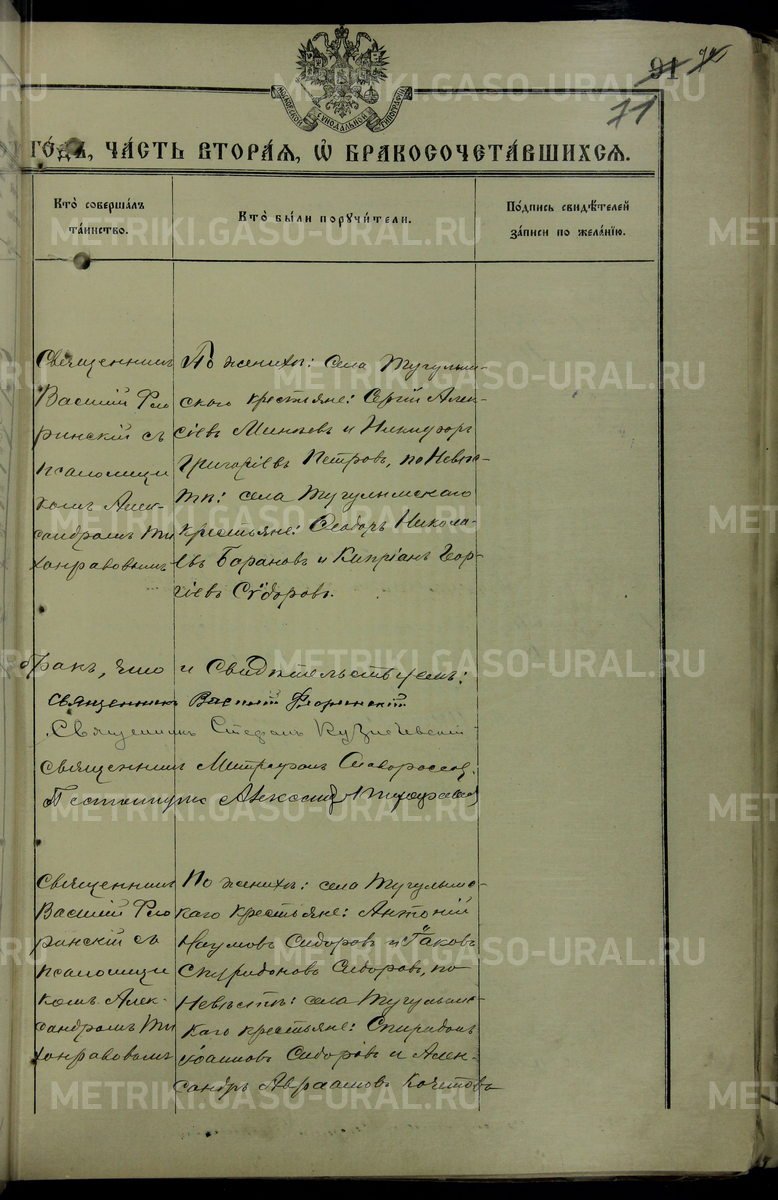 91
71
МОСКОВСКОЙ СѴНОДАЛЬНОЙ ТИПОГРАФІИ
ГО́ДЪ, ЧА́СТЬ ВТОРА́Я, Ѡ БРАКОСОЧЕТА́ВШИХСЯ.
Кто̀ соверша́лъ
та́инство.
Кто̀ бы́ли порꙋчи́тели.
По́дпись свидѣ́телей
за́писи по жела́нїю.
Священникъ
Василій Фло
ринскій съ
псаломщи
комъ Алек-
сандромъ Ти
хонравовымъ
По женихѣ: села Тугулым-
скаго крестьяне: Сергій Алек-
сіевъ Минѣевъ и Никифоръ
Григоріевъ Петровъ, по Невѣс-
тѣ: села Тугулымскаго
крестьяне: Ѳеодоръ Никола-
евъ Барановъ и Кипріанъ Геор-
гіевъ Сидоровъ.
бракъ, что и свидѣтельствуемъ:
Священникъ Василій Флоринскій
Священникъ Стефанъ
Священникъ Митрофанъ
Псаломщикъ Александръ Тихонравовъ
Священникъ
Василій Фло
ринскій съ
псаломщи
комъ Алек-
сандромъ Ти
хонравовымъ
По женихѣ: села Тугулымс-
каго крестьяне: Антоній
Наумовъ Сидоровъ и Іаковъ
Спиридоновъ Сидоровъ, по
Невѣстѣ: села Тугулымс-
каго крестьяне: Спиридонъ
Іоанновъ Сидоровъ и Алек-
сандръ Авраамовъ Кочетовъ
METRIKI.GASO-URAL.RU